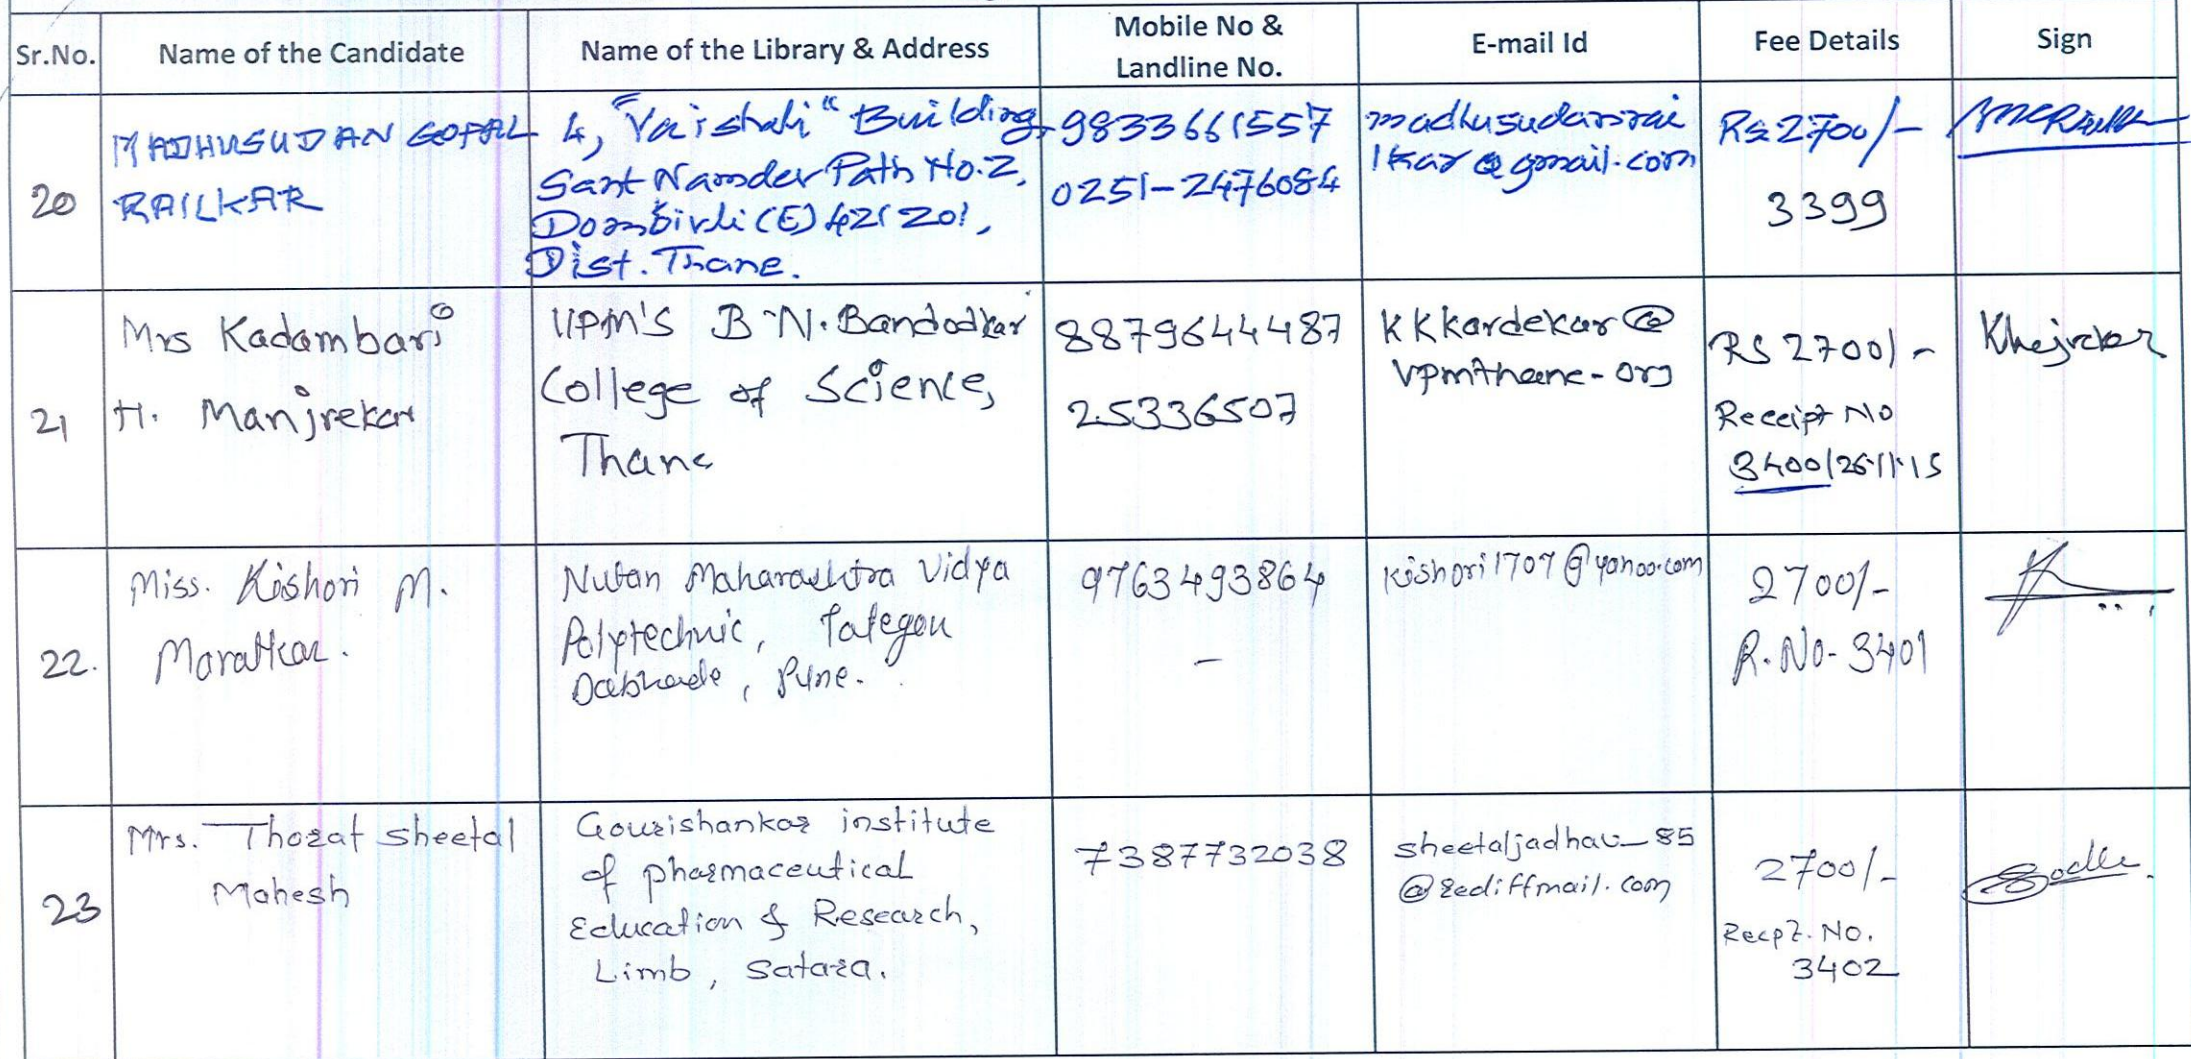 Sr.No.
Name of the Candidate
Name of the Library & Address
Mobile No &
Landline No.
E-mail Id
Fee Details
Sign
20
MADHUSUDAN GOPAL
RAILKAR
4, "Vaishali" Building,
Sant Namdev Path No.2,
Dombivli (E) 421201,
Dist. Thane.
9833661557
0251-2476084
madhusudanrai
lkar@gmail.com
Rs 2700/-
3399
21
Mrs Kadambari
H. Manjrekar
VPM'S B.N. Bandodkar
College of Science,
Thane
8879644487
25336507
KKkardekar@
vpmthane.org
RS 2700/-
Receipt No
3400/26.11.15
22.
Miss. Kishori M.
Maratkar.
Nutan Maharashtra Vidya
Polytechnic, Talegou
Dabhade, Pune.
9763493864
-
kishori1707@yahoo.com
2700/-
R.No-3401
23
Mrs. Thorat Sheetal
Mahesh
Gourishankar institute
of pharmaceutical
Education & Research,
Limb, Satara.
7387732038
sheetaljadhav_85
@rediffmail.com
2700/-
Recpt. No.
3402